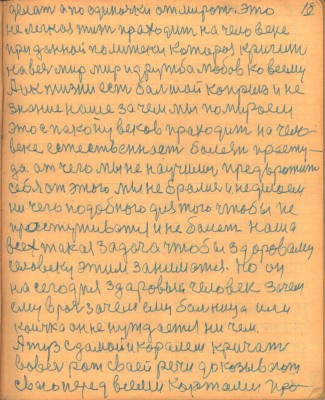 18
делает а по одиночки отмирот. Это
не легкая тит праходит на человеке
при данной политики которая кричит
на весь мир мир и дружба любов ко всему
А ик тизни есть балшой каприз и не
знание наше зачем мы помираем
это спакойу веков праходит на чело-
веке естественнает болезн прасту-
да. от чего мы не научилис предвротит
себя от этого мы не бралис и не делаем
ни чего подобного для того чтобы не
праступиватся и не балет наша
всех такая задача чтобы здоровому
человеку этим заниматся. Но он
на сегодня здаровый человек зачем
ему врач зачем ему балница или
койка он не нуждается ни чем.
А туз с дамой и королем кричат
во весь рот своей речи доказывают
свого перед всеми картами про-